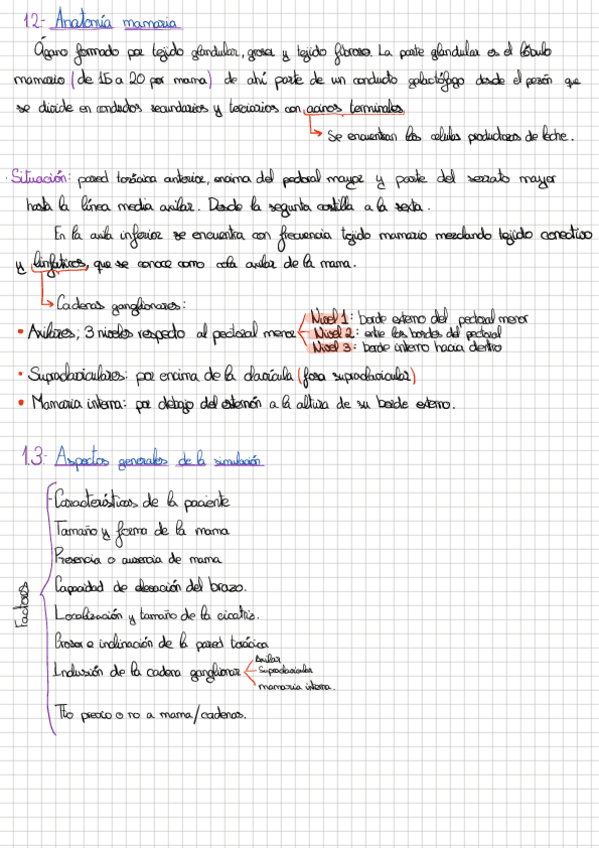 1.2- Anatomía mamaria
Órgano formado por tejido glandular, grasa y tejido fibroso. La parte glandular es el lóbulo
mamario (de 15 a 20 por mama) de ahí parte de un conducto galactóforo desde el pezón que
se divide en conductos secundarios y terciarios con acinos terminales
Se encuentran las celulas productoras de leche.
· Situación: pared torácica anterior, encima del pectoral mayor y parte del serrato mayor
hasta la línea media axilar. Desde la segunta costilla a la sexta.
En la axila inferior se encuentra con frecuencia tejido mamario mezclando tejido conectivo
y linfáticos, que se conoce como cola axilar de la mama.
Cadenas ganglionares:
• Axilares; 3 niveles respecto al pectoral menor
Nivel 1: borde externo del pectoral menor
Nivel 2: entre los bordes del pectoral
Nivel 3: borde interno hacia dentro
• Supraclaviculares: por encima de la clavícula (fosa supraclavicular)
• Mamaria interna: por debajo del esternón a la altura de su borde externo.
1.3- Aspectos generales de la simulación
Factores
Características de la paciente
Tamaño y forma de la mama
Presencia o ausencia de mama
Capacidad de elevación del brazo.
Localización y tamaño de la cicatriz.
Grosor e inclinación de la pared torácica
Inclusión de la cadena ganglionar
Axilar
Supraclavicular
mamaria interna.
Tto previo o no a mama/cadenas.